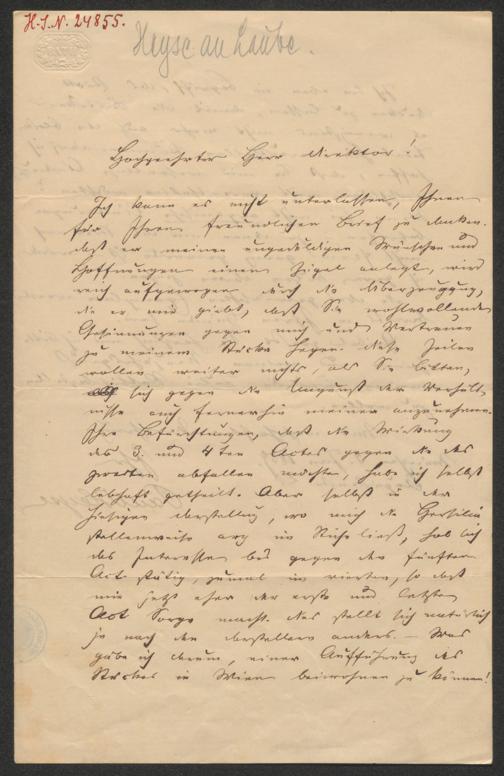 H.I.N. 24855.
Heyse an Laube.
Hochgeehrter Herr Direktor!
Ich kann es nicht unterlassen, Ihnen
für Ihren freundlichen Brief zu danken.
daß er meinen ungeduldigen Wünschen und
Hoffnungen einen Zügel anlegt, wird
reich aufgewogen durch die Überzeugung,
die er mir giebt, daß Sie wohlwollende
Gesinnungen gegen mich und Vertrauen
zu meinem Stücke hegen. diese Zeilen
wollen weiter nichts, als Sie bitten,
sich gegen die Ungunst der Verhält-
nisse auch fernerhin meiner anzunehmen.
Ihre Befürchtungen, daß die Wirkung
des 3. und 4ten Actes gegen die des
zweiten abfallen möchte, habe ich selbst
lebhaft getheilt. Aber selbst in der
hiesigen darstellung, wo mich die
stellenweise arg im Stiche ließ, hob sich
das Interesse bis gegen den fünften
Act stätig zumal im vierten, so daß
mir jetzt eher der erste und letzte
Act Sorge macht. das stellt sich natürlich
je nach den darstellern anders. – Was
gäbe ich darum, einer Aufführung des
Stückes in Wien beiwohnen zu können!